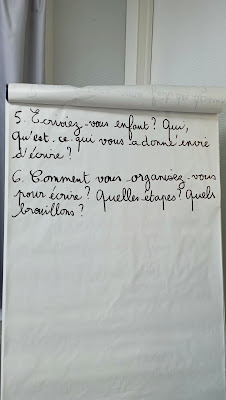 5. Ecriviez-vous enfant? Qui,
qu'est-ce qui vous a donné envie
d'écrire?
6. Comment vous organisez-vous
pour écrire? Quelles étapes? Quels
brouillons?